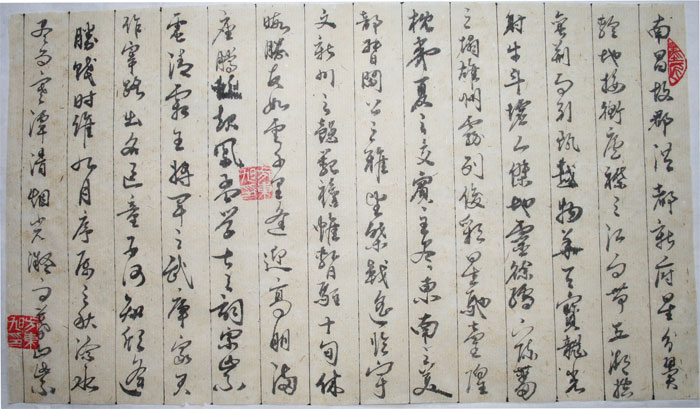 南昌故郡洪都新府星分翼
轸地接衡庐襟三江而带五湖控
蛮荆而引瓯越物华天宝龙光
射牛斗墟人杰地灵徐孺下陈蕃
之榻雄州雾列俊彩星驰台隍
枕夷夏之交宾主尽东南之美
都督阎公之雅望棨戟遥临宇
文新州之懿范襜帷暂驻十旬休
暇胜友如云千里逢迎高朋满
座腾蛟起凤孟学士之词宗紫
电清霜王将军之武库家君
作宰路出名区童子何知躬逢
胜饯时维九月序属三秋潦水
尽而寒潭清烟光凝而暮山紫